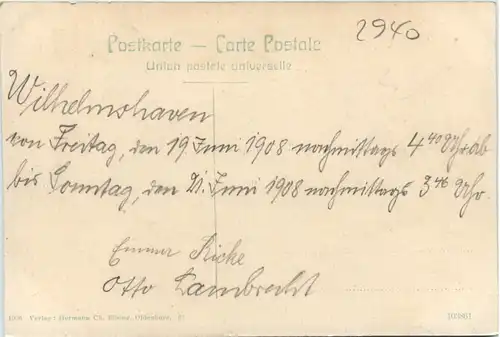 2940
Postkarte — Carte Postale
Union postale universelle
Wilhelmshaven
von Freitag, den 19 Juni 1908 nachmittags 4 40 Uhr ab
bis Sonntag, den 21. Juni 1908 nachmittags 3 46 Uhr.
Emma Ricke
Otto Lambrecht
Verlag: Hermann Oldenburg